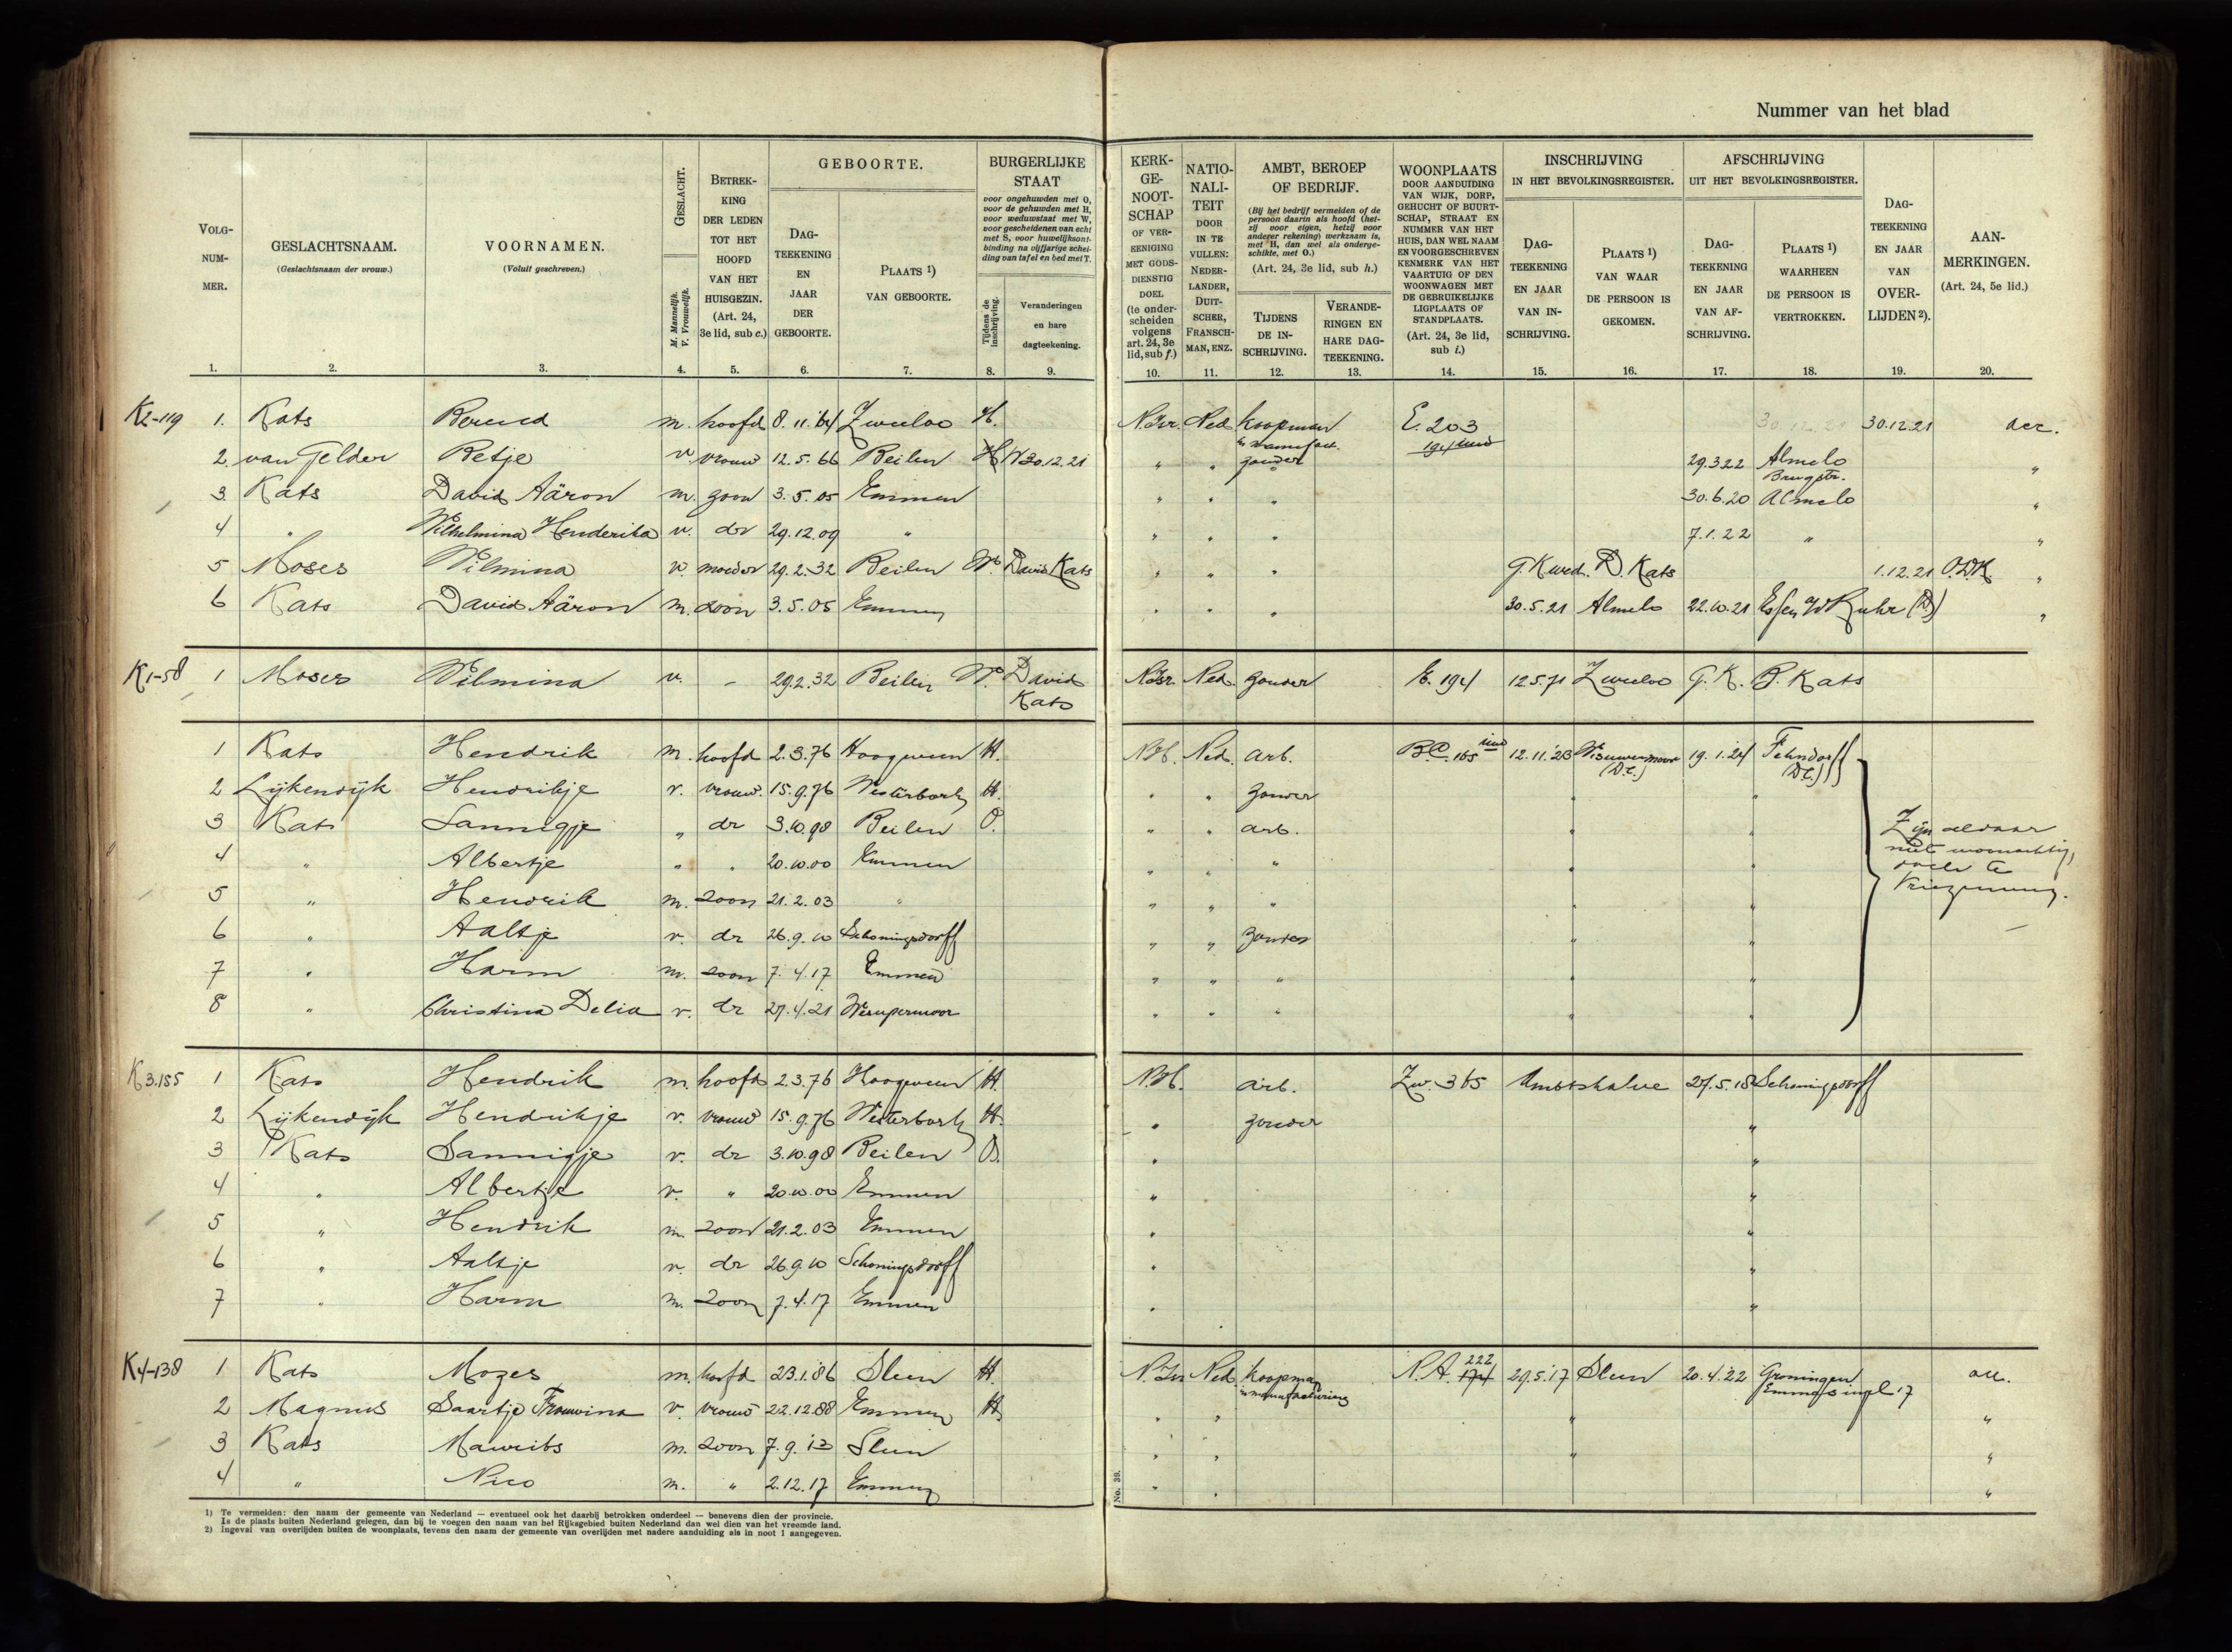 Nummer van het blad
VOLG-NUM-MER.
GESLACHTSNAAM.
(Geslachtsnaam der vrouw.)
VOORNAMEN.
(Voluit geschreven.)
GESLACHT.
M. Mannelijk.
V. Vrouwelijk.
BETREK-KING DER LEDEN TOT HET HOOFD VAN HET HUISGEZIN.
(Art. 24, 3e lid, sub c.)
GEBOORTE.
DAG-TEEKENING EN JAAR DER GEBOORTE.
PLAATS 1) VAN GEBOORTE.
BURGERLIJKE STAAT
voor ongehuwden met O,
voor de gehuwden met H,
voor weduwstaat met W,
voor gescheidenen van echt
met S, voor huwelijksont-
binding na vijfjarige schei-
ding van tafel en bed met T.
Tijdens de inschrijving.
Veranderingen en hare dagteekening.
KERK-GE-NOOT-SCHAP
OF VER-EENIGING MET GODS-DIENSTIG DOEL
(te onder-scheiden volgens art. 24, 3e lid, sub f.)
NATIO-NALI-TEIT
DOOR IN TE VULLEN: NEDER-LANDER, DUIT-SCHER, FRANSCH-MAN, ENZ.
AMBT, BEROEP OF BEDRIJF.
(Bij het bedrijf vermelden of de
persoon daarin als hoofd (het-
zij voor eigen, hetzij voor
anderer rekening) werkzaam is,
met H, dan wel als onderge-
schikte, met O.)
(Art. 24, 3e lid, sub h.)
TIJDENS DE IN-SCHRIJVING.
VERANDE-RINGEN EN HARE DAG-TEEKENING.
WOONPLAATS
DOOR AANDUIDING
VAN WIJK, DORP,
GEHUCHT OF BUURT-
SCHAP, STRAAT EN
NUMMER VAN HET
HUIS, DAN WEL NAAM
EN VOORGESCHREVEN
KENMERK VAN HET
VAARTUIG OF DEN
WOONWAGEN MET
DE GEBRUIKELIJKE
LIGPLAATS OF
STANDPLAATS.
(Art. 24, 3e lid, sub i.)
INSCHRIJVING
IN HET BEVOLKINGSREGISTER.
DAG-TEEKENING EN JAAR VAN IN-SCHRIJVING.
PLAATS 1) VAN WAAR DE PERSOON IS GEKOMEN.
AFSCHRIJVING
UIT HET BEVOLKINGSREGISTER.
DAG-TEEKENING EN JAAR VAN AF-SCHRIJVING.
PLAATS 1) WAARHEEN DE PERSOON IS VERTROKKEN.
DAG-TEEKENING EN JAAR VAN OVER-LIJDEN 2).
AAN-MERKINGEN.
(Art. 24, 5e lid.)
1. 2. 3. 4. 5. 6. 7. 8. 9. 10. 11. 12. 13. 14. 15. 16. 17. 18. 19. 20.
K2-119 1. Kats Berend m. hoofd 8.11.'64 Zweeloo H. N.Isr. Ned. koopman in manufact. E. 203 194 30.12.21 acc.
2. van Gelder Betje v. vrouw 12.5.66 Beilen H W 30.12.21 " " zonder 29.3.22 Almelo Brugstr. "
3 Kats David Aäron m. zoon 3.5.05 Emmen " " " 30.6.20 Almelo "
4 " Wilhelmina Henderika v. dr 29.12.09 " " " " 7.1.22 " "
5 Moses Wilmina v. moeder 29.2.32 Beilen W. David Kats " " " G.K wed. D. Kats 1.12.21 O.D.K. "
6 Kats David Aäron m. zoon 3.5.05 Emmen " " " 30.5.21 Almelo 22.10.21 Essen Ruhr (D) "
K1-58 1 Moses Wilmina v. - 29.2.32 Beilen W. David Kats N.Isr. Ned. zonder E. 194 12.5.71 Zweeloo G.K. B. Kats
1 Kats Hendrik m. hoofd 2.3.76 Hoogeveen H. N.H. Ned. arb. B.C. 165 12.11.'23 19.1.24 Fehndorff (D.)
2 Lijkendijk Hendrikje v. vrouw. 15.9.76 Westerbork H. " " zonder " "
3 Kats Lannigje " dr 3.10.98 Beilen O. " " arb. " "
4 " Albertje " " 20.10.00 Emmen " " " "
5 " Hendrik m. zoon 21.2.03 " " " " " "
6 " Aaltje v. dr 26.9.10 Schoningsdorff " " zonder " "
7 " Harm m. zoon 7.4.17 Emmen " " " " "
8 " Christina Delia v. dr 27.4.21 " " " " "
Zijn aldaar
niet woonachtig,
doch te
K3.155 1 Kats Hendrik m. hoofd 2.3.76 Hoogeveen H. N.H. arb. Zw. 365 Ambtshalve 27.5.18 Schoningsdorff
2 Lijkendijk Hendrikje v. vrouw 15.9.76 Westerbork H. " zonder "
3 Kats Lannigje v. dr 3.10.98 Beilen O. " "
4 " Albertje v. " 20.10.00 Emmen " "
5 " Hendrik m. zoon 21.2.03 Emmen " "
6 " Aaltje v. dr 26.9.10 Schoningsdorff " "
7 " Harm m. zoon 7.4.17 Emmen " "
K4-138 1 Kats Mozes m. hoofd 23.1.'86 Sleen H. N.Isr Ned. koopman in manufacturing N.A. 222 174 29.5.'17 Sleen 20.4.22 Groningen Emmasingel 17 acc.
2 Magnus Saartje Frouwina v. vrouw 22.12.88 Emmen H. " " " "
3 Kats Maurits m. zoon 7.9.'13 Sleen " " " "
4 " Nico m. " 2.12.17 Emmen " " "
No. 39.
1) Te vermelden: den naam der gemeente van Nederland — eventueel ook het daarbij betrokken onderdeel — benevens dien der provincie.
Is de plaats buiten Nederland gelegen, dan bij te voegen den naam van het Rijksgebied buiten Nederland dan wel dien van het vreemde land.
2) Ingeval van overlijden buiten de woonplaats, tevens den naam der gemeente van overlijden met nadere aanduiding als in noot 1 aangegeven.